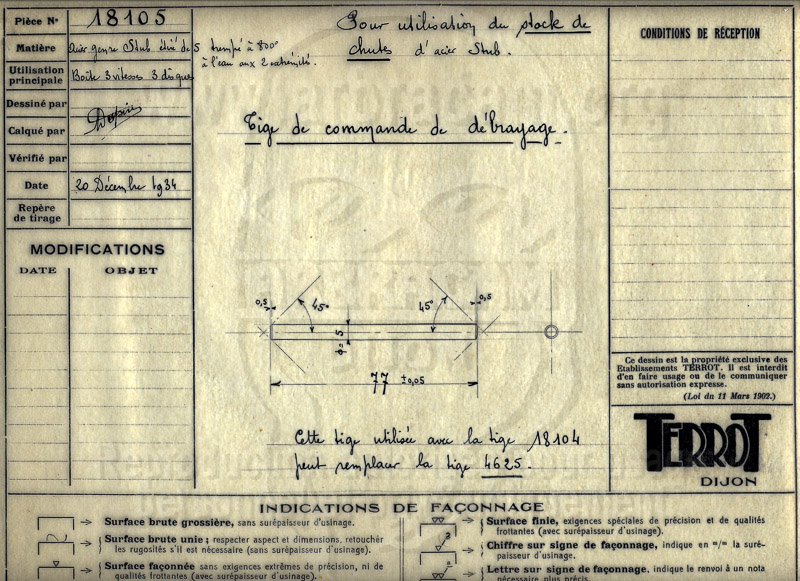 Pièce N° 18105
Matière Acier genre Stub étiré de 5 trempé à 800°
à l'eau aux 2 extrémités.
Utilisation
principale Boîte 3 vitesses 3 disques
Dessiné par
Calqué par
Vérifié par
Date 20 Décembre 1934
Repère
de tirage
MODIFICATIONS
DATE OBJET
Pour utilisation du stock de
chutes d'acier Stub.
Tige de commande de débrayage.
0,5 45° 45° 0,5
φ = 5
77 ±0,05
Cette tige utilisée avec la tige 18104
peut remplacer la tige 4625.
CONDITIONS DE RÉCEPTION
Ce dessin est la propriété exclusive des
Etablissements TERROT. Il est interdit
d'en faire usage ou de le communiquer
sans autorisation expresse.
(Loi du 11 Mars 1902.)
TERROT
DIJON
INDICATIONS DE FAÇONNAGE
Surface brute grossière, sans surépaisseur d'usinage.
Surface brute unie; respecter aspect et dimensions, retoucher
les rugosités s'il est nécessaire (sans surépaisseur d'usinage).
Surface façonnée sans exigences extrêmes de précision, ni de
qualités frottantes (avec surépaisseur d'usinage).
Surface finie, exigences spéciales de précision et de qualités
frottantes (avec surépaisseur d'usinage).
3 Chiffre sur signe de façonnage, indique en m/m la suré-
paisseur d'usinage.
Lettre sur signe de façonnage, indique le renvoi à un nota
nécessaire plus précis.